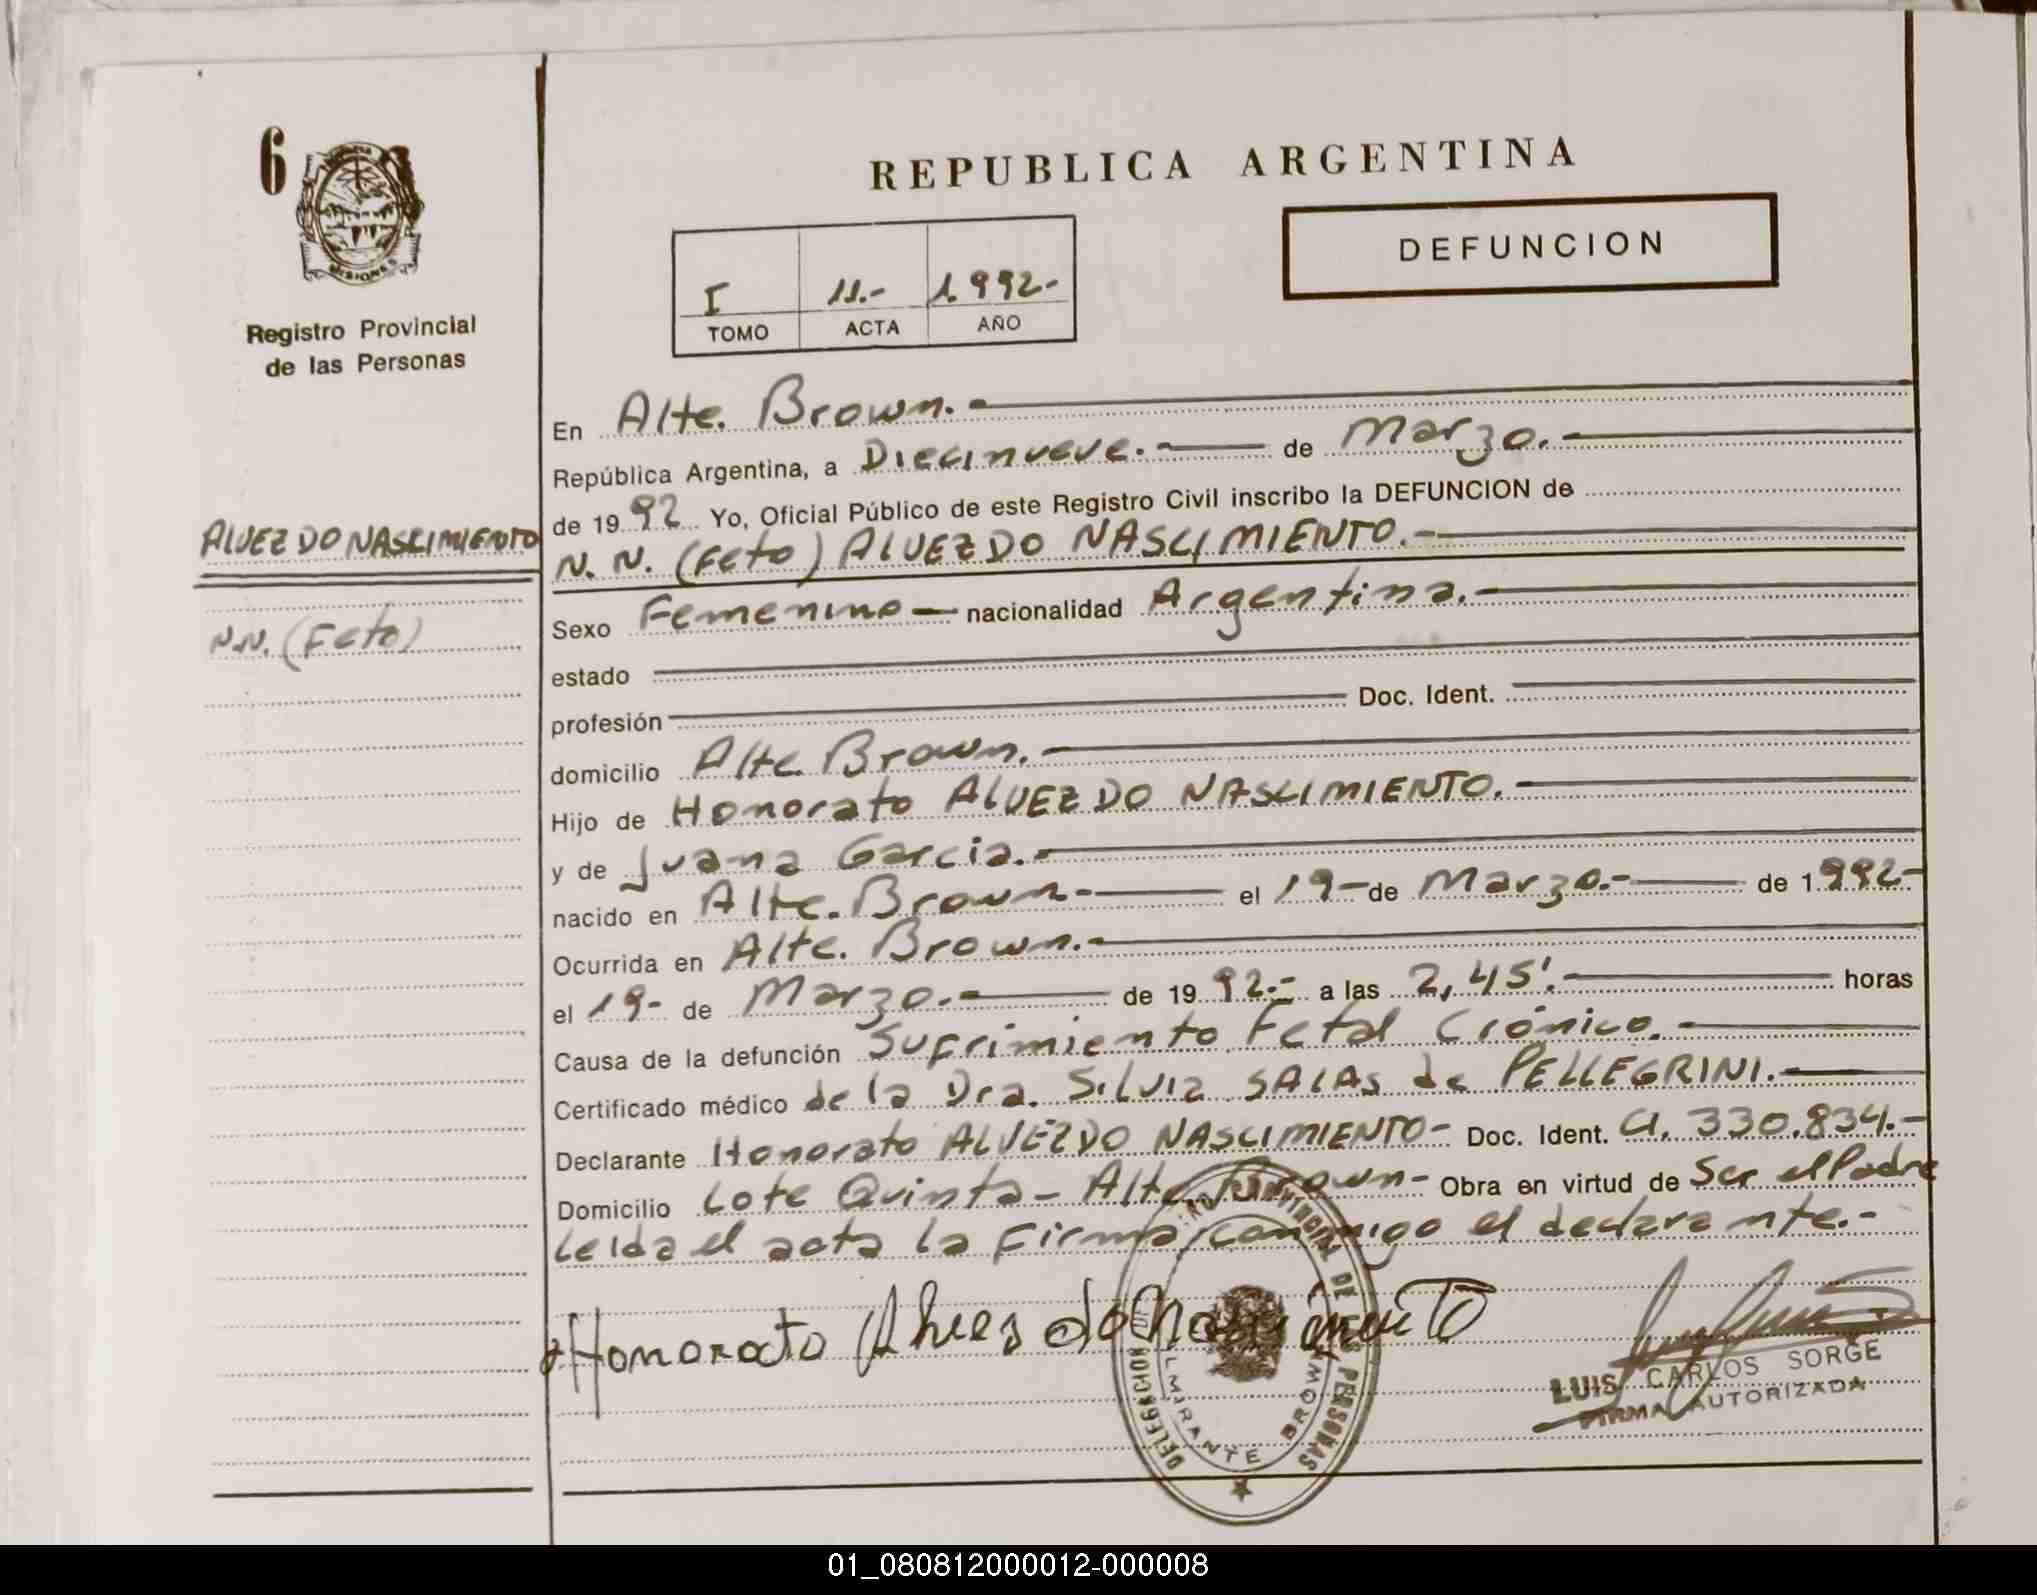 6
MISIONES
Registro Provincial
de las Personas
ALVEZ DO NASCIMIENTO
N.N. (Feto)
REPUBLICA ARGENTINA
DEFUNCION
I 11.- 1.992-
TOMO ACTA AÑO
En Alte. Brown.-
República Argentina, a Diecinueve.- de Marzo.-
de 1992 Yo, Oficial Público de este Registro Civil inscribo la DEFUNCION de
N. N. (Feto) ALVEZ DO NASCIMIENTO.-
Sexo Femenino- nacionalidad Argentina.-
estado
profesión Doc. Ident.
domicilio Alte Brown.-
Hijo de Honorato ALVEZ DO NASCIMIENTO.-
y de Juana Garcia.-
nacido en Alte. Brown- el 19- de Marzo.- de 1992-
Ocurrida en Alte. Brown.-
el 19- de Marzo.- de 1992.- a las 2,45'.- horas
Causa de la defunción Sufrimiento Fetal Crónico.-
Certificado médico de la Dra. Silvia SALAS de PELLEGRINI.-
Declarante Honorato ALVEZ DO NASCIMIENTO- Doc. Ident. CI. 330.834.-
Domicilio Lote Quinta- Alte. Brown- Obra en virtud de Ser el Padre
Leida el acta la firma conmigo el declarante.-
Honorato Alves do Nascimento
DELEGACION PROVINCIAL DE LAS PERSONAS
ALMIRANTE BROWN
LUIS CARLOS SORGE
FIRMA AUTORIZADA
01_080812000012-000008